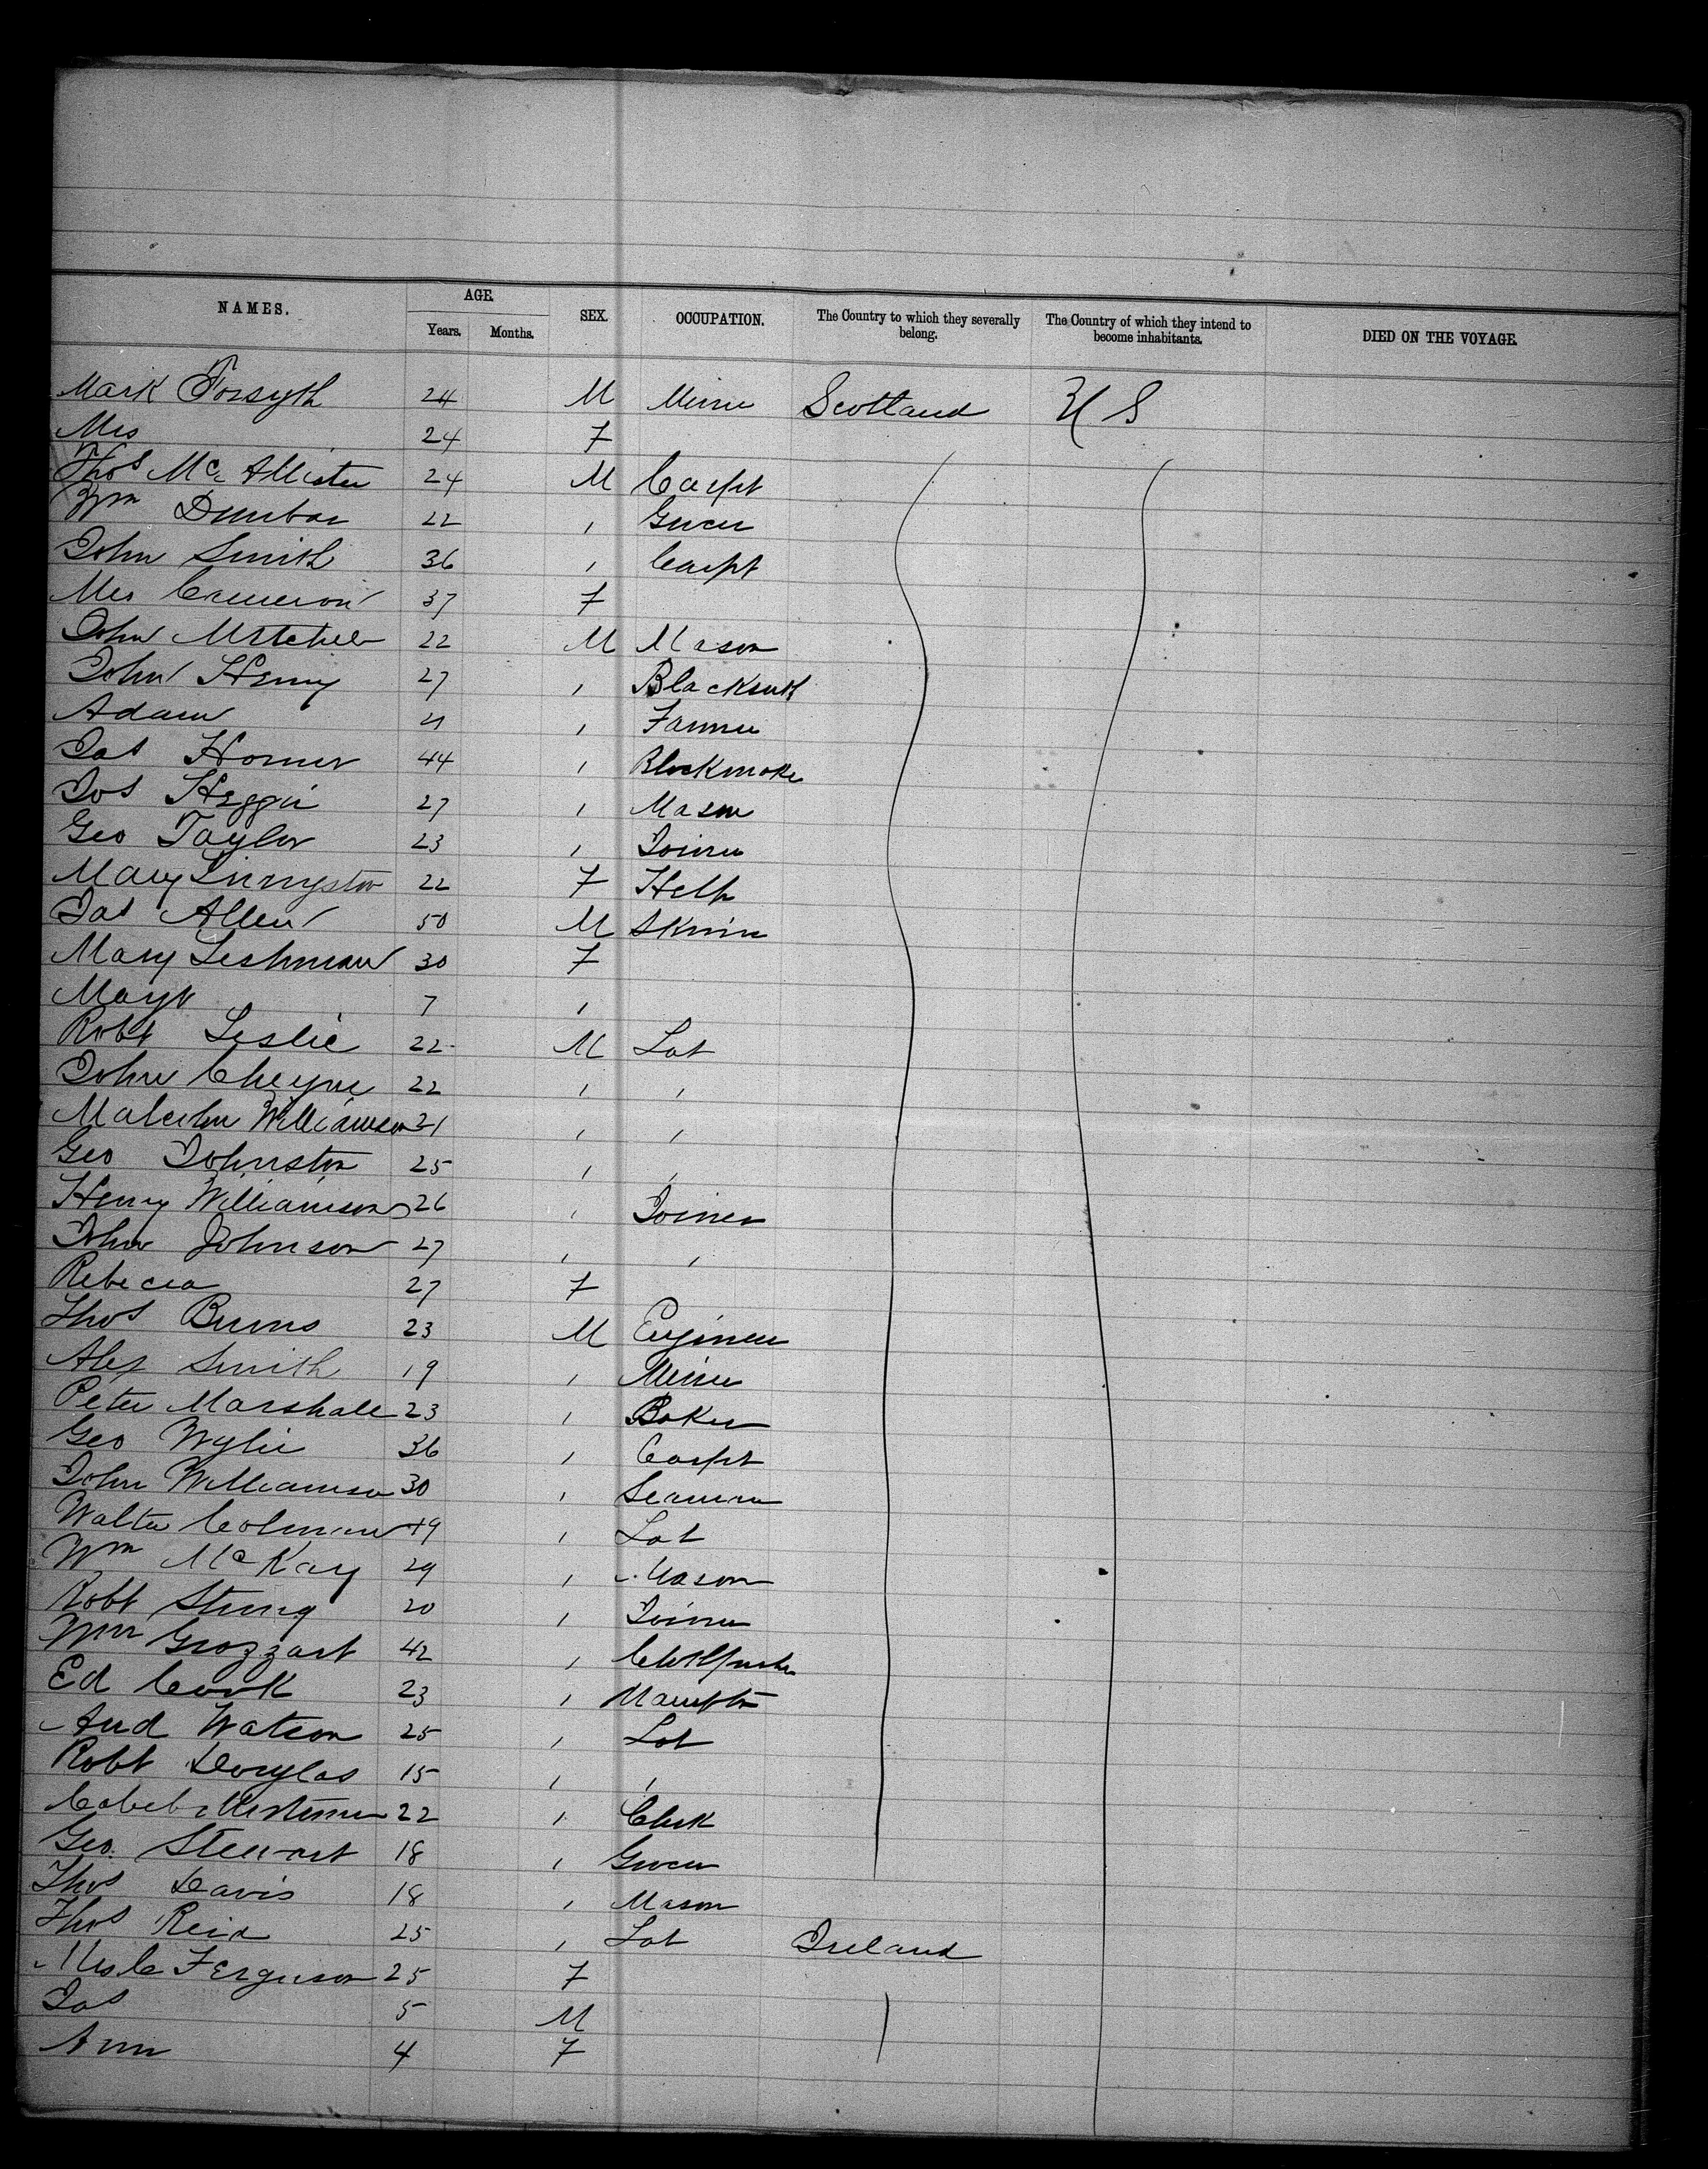 NAMES. AGE. SEX. OCCUPATION. The Country to which they severally belong. The Country of which they intend to become inhabitants. DIED ON THE VOYAGE.
Years. Months.
Mark Forsyth 24 M Miner Scotland U S
Mrs 24 F
Thos McAllister 24 M Carpt
Wm Dunbar 22 , Grocer
John Smith 36 , Carpt
Mrs Cameron 37 F
John Mitchell 22 M Mason
John Henry 27 , Blacksmth
Adam 21 , Farmer
Jas Horner 44 , Blockmaker
Jos Heggie 27 , Mason
Geo Taylor 23 , Joiner
Mary Livingston 22 F Help
Jas Allen 50 M Skinner
Mary Leshman 30 F
Margt 7 ,
Robt Leslie 22 M Lab
John Cheyne 22 , ,
Malcolm Williamson 21 , ,
Geo Johnston 25 , ,
Henry Williamson 26 , Joiner
John Johnson 27 , ,
Rebecca 27 F
Thos Burns 23 M Engineer
Alex Smith 19 , Miner
Peter Marshall 23 , Baker
Geo Wylie 36 , Carpt
John Williamson 30 , Seaman
Walter Colman 19 , Lab
Wm McKay 29 , Mason
Robt String 20 , Joiner
Wm Grozzart 42 ,
Ed Cook 23 ,
And Watson 25 , Lab
Robt Douglas 15 , ,
22 , Clerk
Geo. Stewart 18 , Grocer
Thos Davis 18 , Mason
Thos Reid 25 , Lab Ireland
Mrs C Ferguson 25 F
Jas 5 M
Ann 4 F